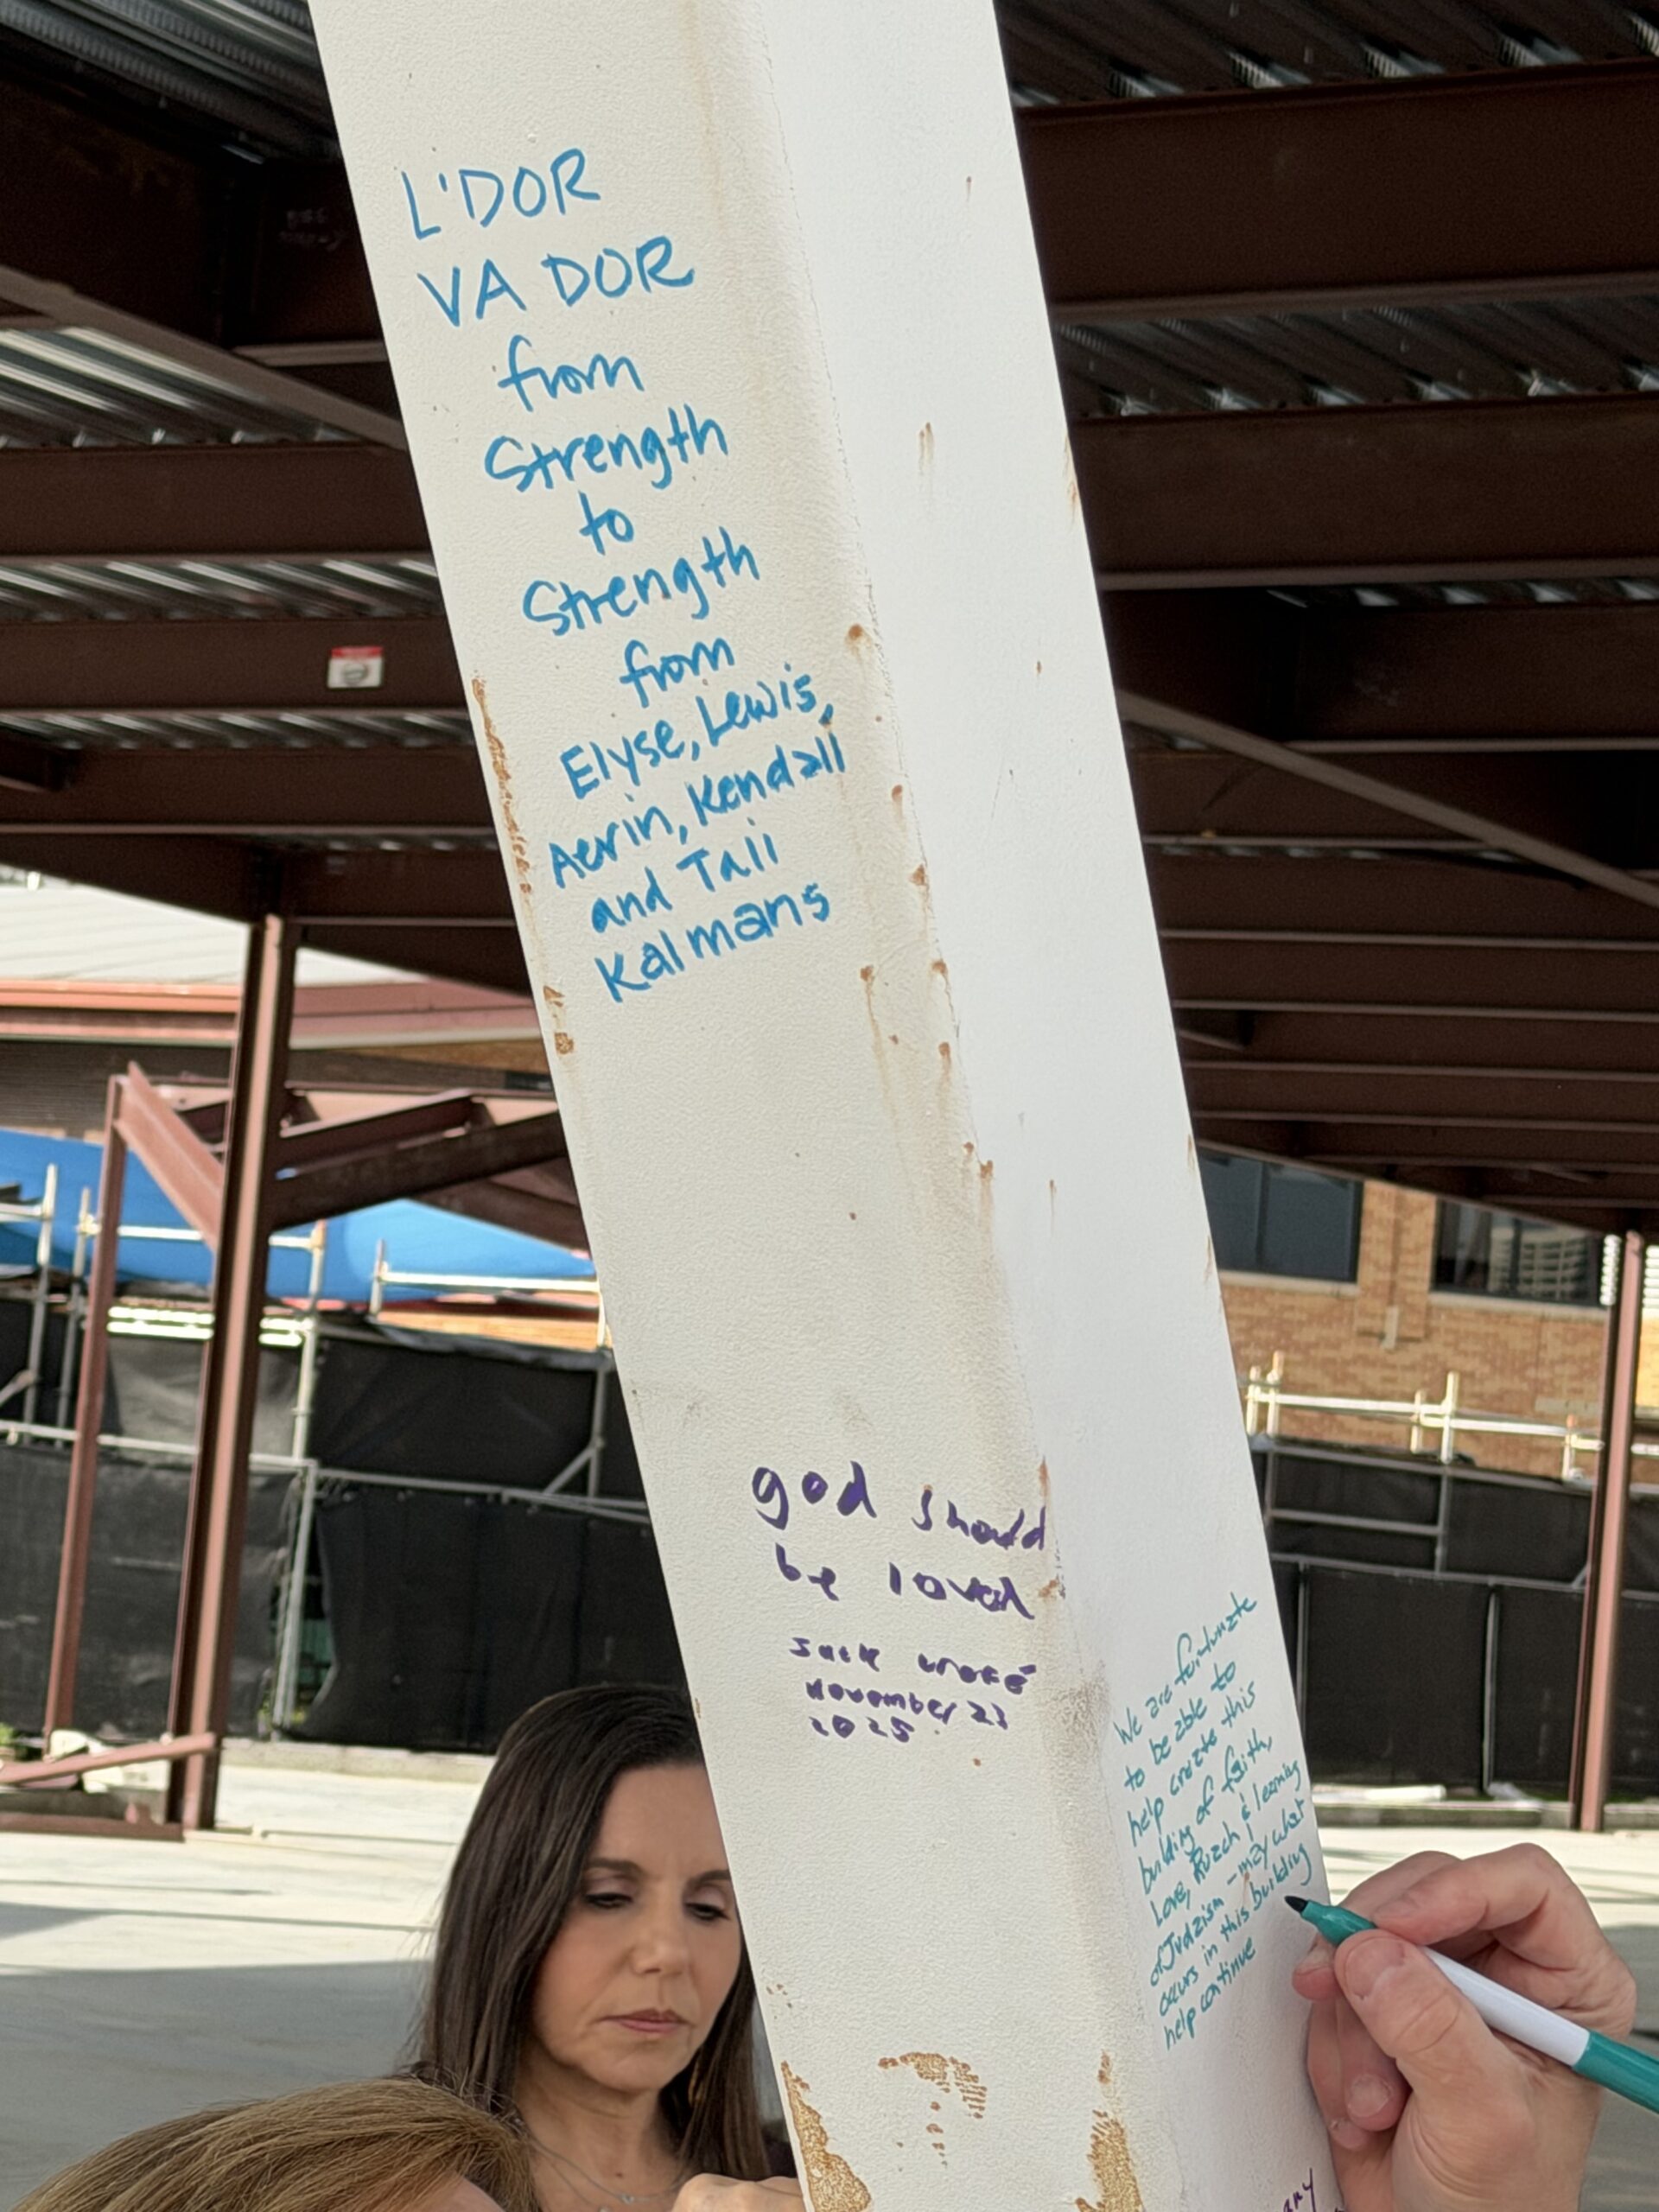 L'DOR
VA DOR
from
Strength
to
Strength
from
Elyse, Lewis,
Aerin, Kendall
and Tali
Kalmans
god should
be loved
Jack wrote
November 23
2025
We are fortunate
to be able to
help create this
building of faith,
Love, Ruach & learning
of Judaism - may what
occurs in this building
help continue